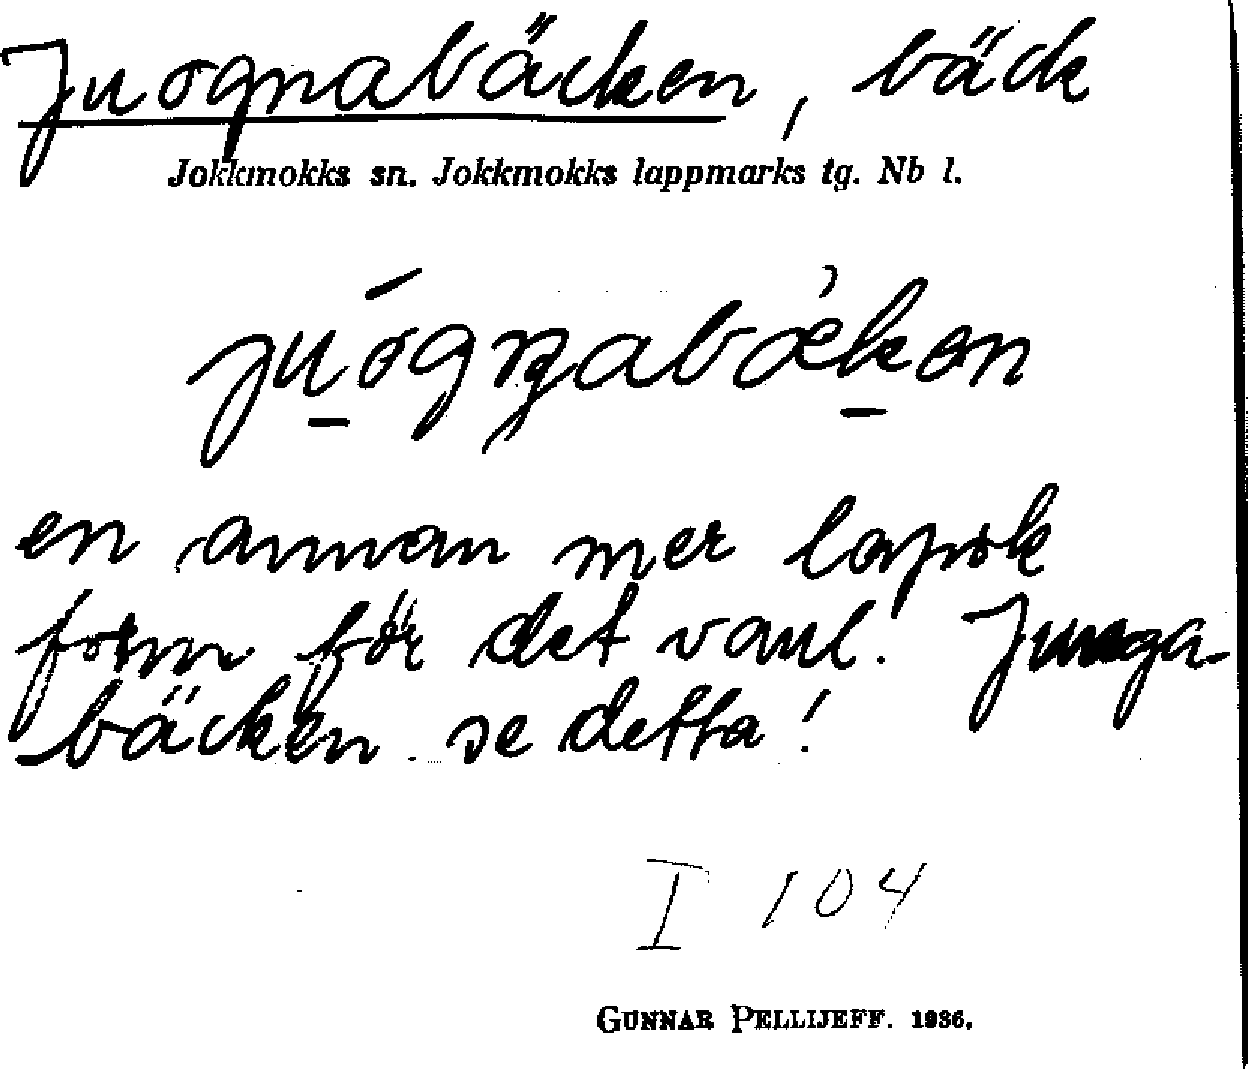 Juognabäcken, bäck
Jokkmokks sn. Jokkmokks lappmarks tg. Nb l.
en annan mer lapsk
form för det vanl. Junga-
bäcken se detta!
I 104
GUNNAR PELLIJEFF. 1936.